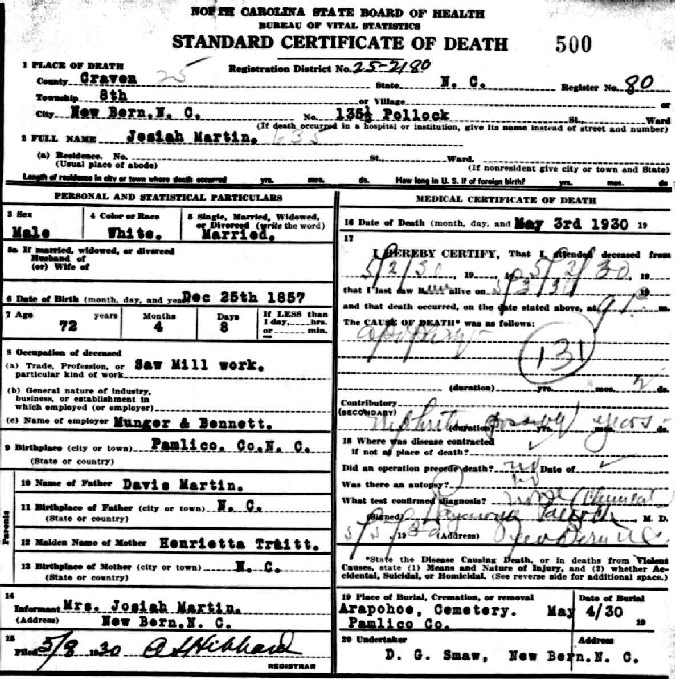 NORTH CAROLINA STATE BOARD OF HEALTH
BUREAU OF VITAL STATISTICS
STANDARD CERTIFICATE OF DEATH 500
1 PLACE OF DEATH
Registration District No. 25-2180
County Craven 25 State N. C. Register No. 80
Township 8th or Village or
City New Bern. N. C. No. 135½ Pollock St. Ward
(If death occurred in a hospital or institution, give its name instead of street and number)
2 FULL NAME Josiah Martin. 635
(a) Residence. No. St. Ward.
(Usual place of abode) (If nonresident give city or town and State)
Length of residence in city or town where death occurred yrs. mos. ds. How long in U. S. if of foreign birth? yrs. mos. ds.
PERSONAL AND STATISTICAL PARTICULARS
3 Sex 4 Color or Race 5 Single, Married, Widowed, or Divorced (write the word)
Male White. Married.
5a If married, widowed, or divorced
Husband of
(or) Wife of
6 Date of Birth (month, day, and year) Dec 25th 1857
7 Age years Months Days If LESS than
72 4 8 1 day, hrs.
or min.
8 Occupation of deceased
(a) Trade, Profession, or particular kind of work. Saw Mill work.
(b) General nature of Industry,
business, or establishment in
which employed (or employer)
(c) Name of employer Munger & Bennett.
9 Birthplace (city or town) Pamlico. Co. N. C.
(State or country)
Parents
10 Name of Father Davis Martin.
11 Birthplace of Father (city or town) N. C.
(State or country)
12 Maiden Name of Mother Henrietta Truitt.
13 Birthplace of Mother (city or town) N. C.
(State or country)
14
Informant Mrs. Josiah Martin.
(Address) New Bern. N. C.
15
Filed 5/8 1930 A S Hibbard
REGISTRAR
MEDICAL CERTIFICATE OF DEATH
16 Date of Death (month, day, and May 3rd 1930 19
17
I HEREBY CERTIFY, That I attended deceased from
5/2/30 19 5/2/30 19
that I last saw alive on
and that death occurred, on the date stated above, at m.
The CAUSE OF DEATH* was as follows:
131
(duration) yrs. mos. ds.
Contributory
(SECONDARY)
Nephritis years
(duration)
18 Where was disease contracted
if not at place of death?
Did an operation precede death? no Date of
Was there an autopsy? no
What test confirmed diagnosis?
(Signed) Raymond M. D.
5/5 19 (Address) New Bern N C
*State the Disease Causing Death, or in deaths from Violent
Causes, state (1) Means and Nature of Injury, and (2) whether Accidental,
Suicidal, or Homicidal. (See reverse side for additional space.)
19 Place of Burial, Cremation, or removal Date of Burial
Arapohoe, Cemetery. May 4/30
Pamlico Co. 19
20 Undertaker Address
D. G. Smaw, New Bern. N. C.